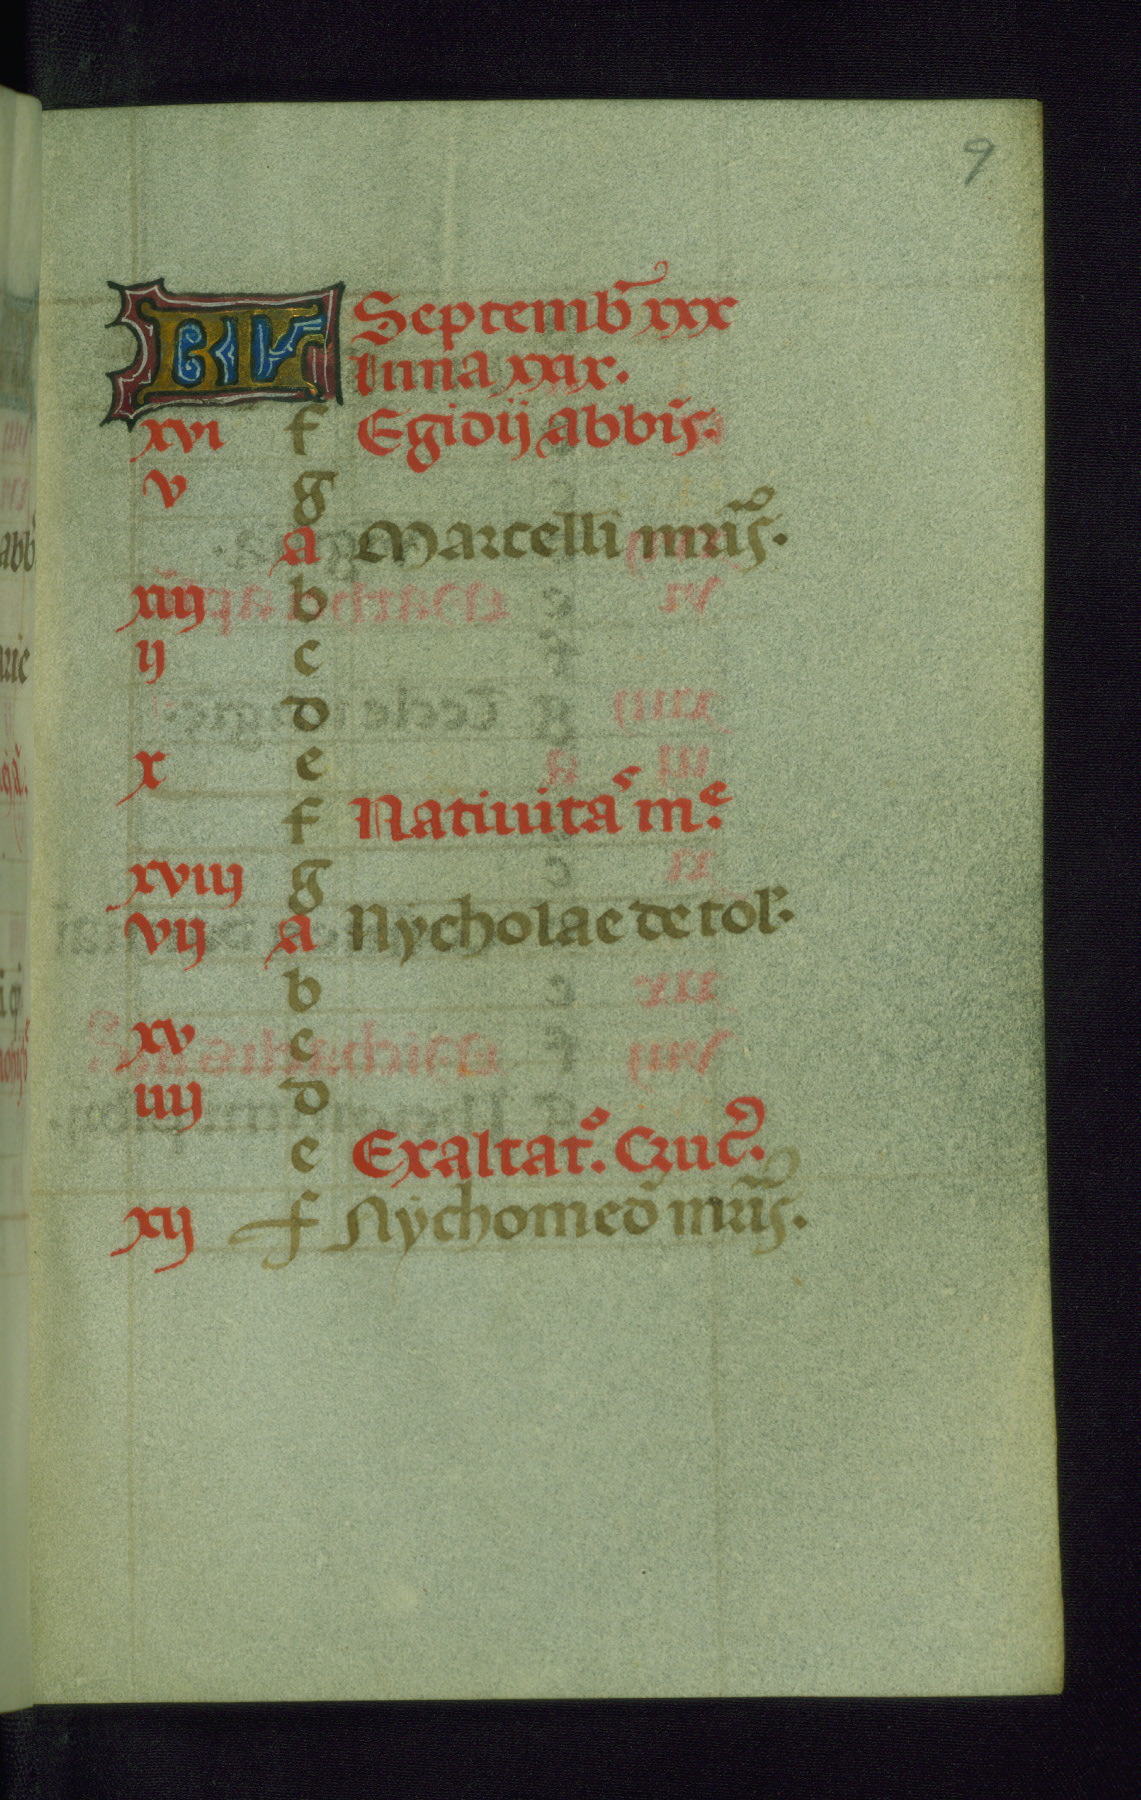 9
KL Septemb̄ xxx
Luna xxix.
xvi f Egidij abbīs.
v g
a Marcelli mr̄is.
xiij b
ij c
d
x e
f Natiuitaˢ mᵉ.
xviii g
vij a Nycholae de tol.
b
xv c
iiij d
e Exaltatᵒ. Cruc̄.
xij f Nychomed̄ mr̄is.